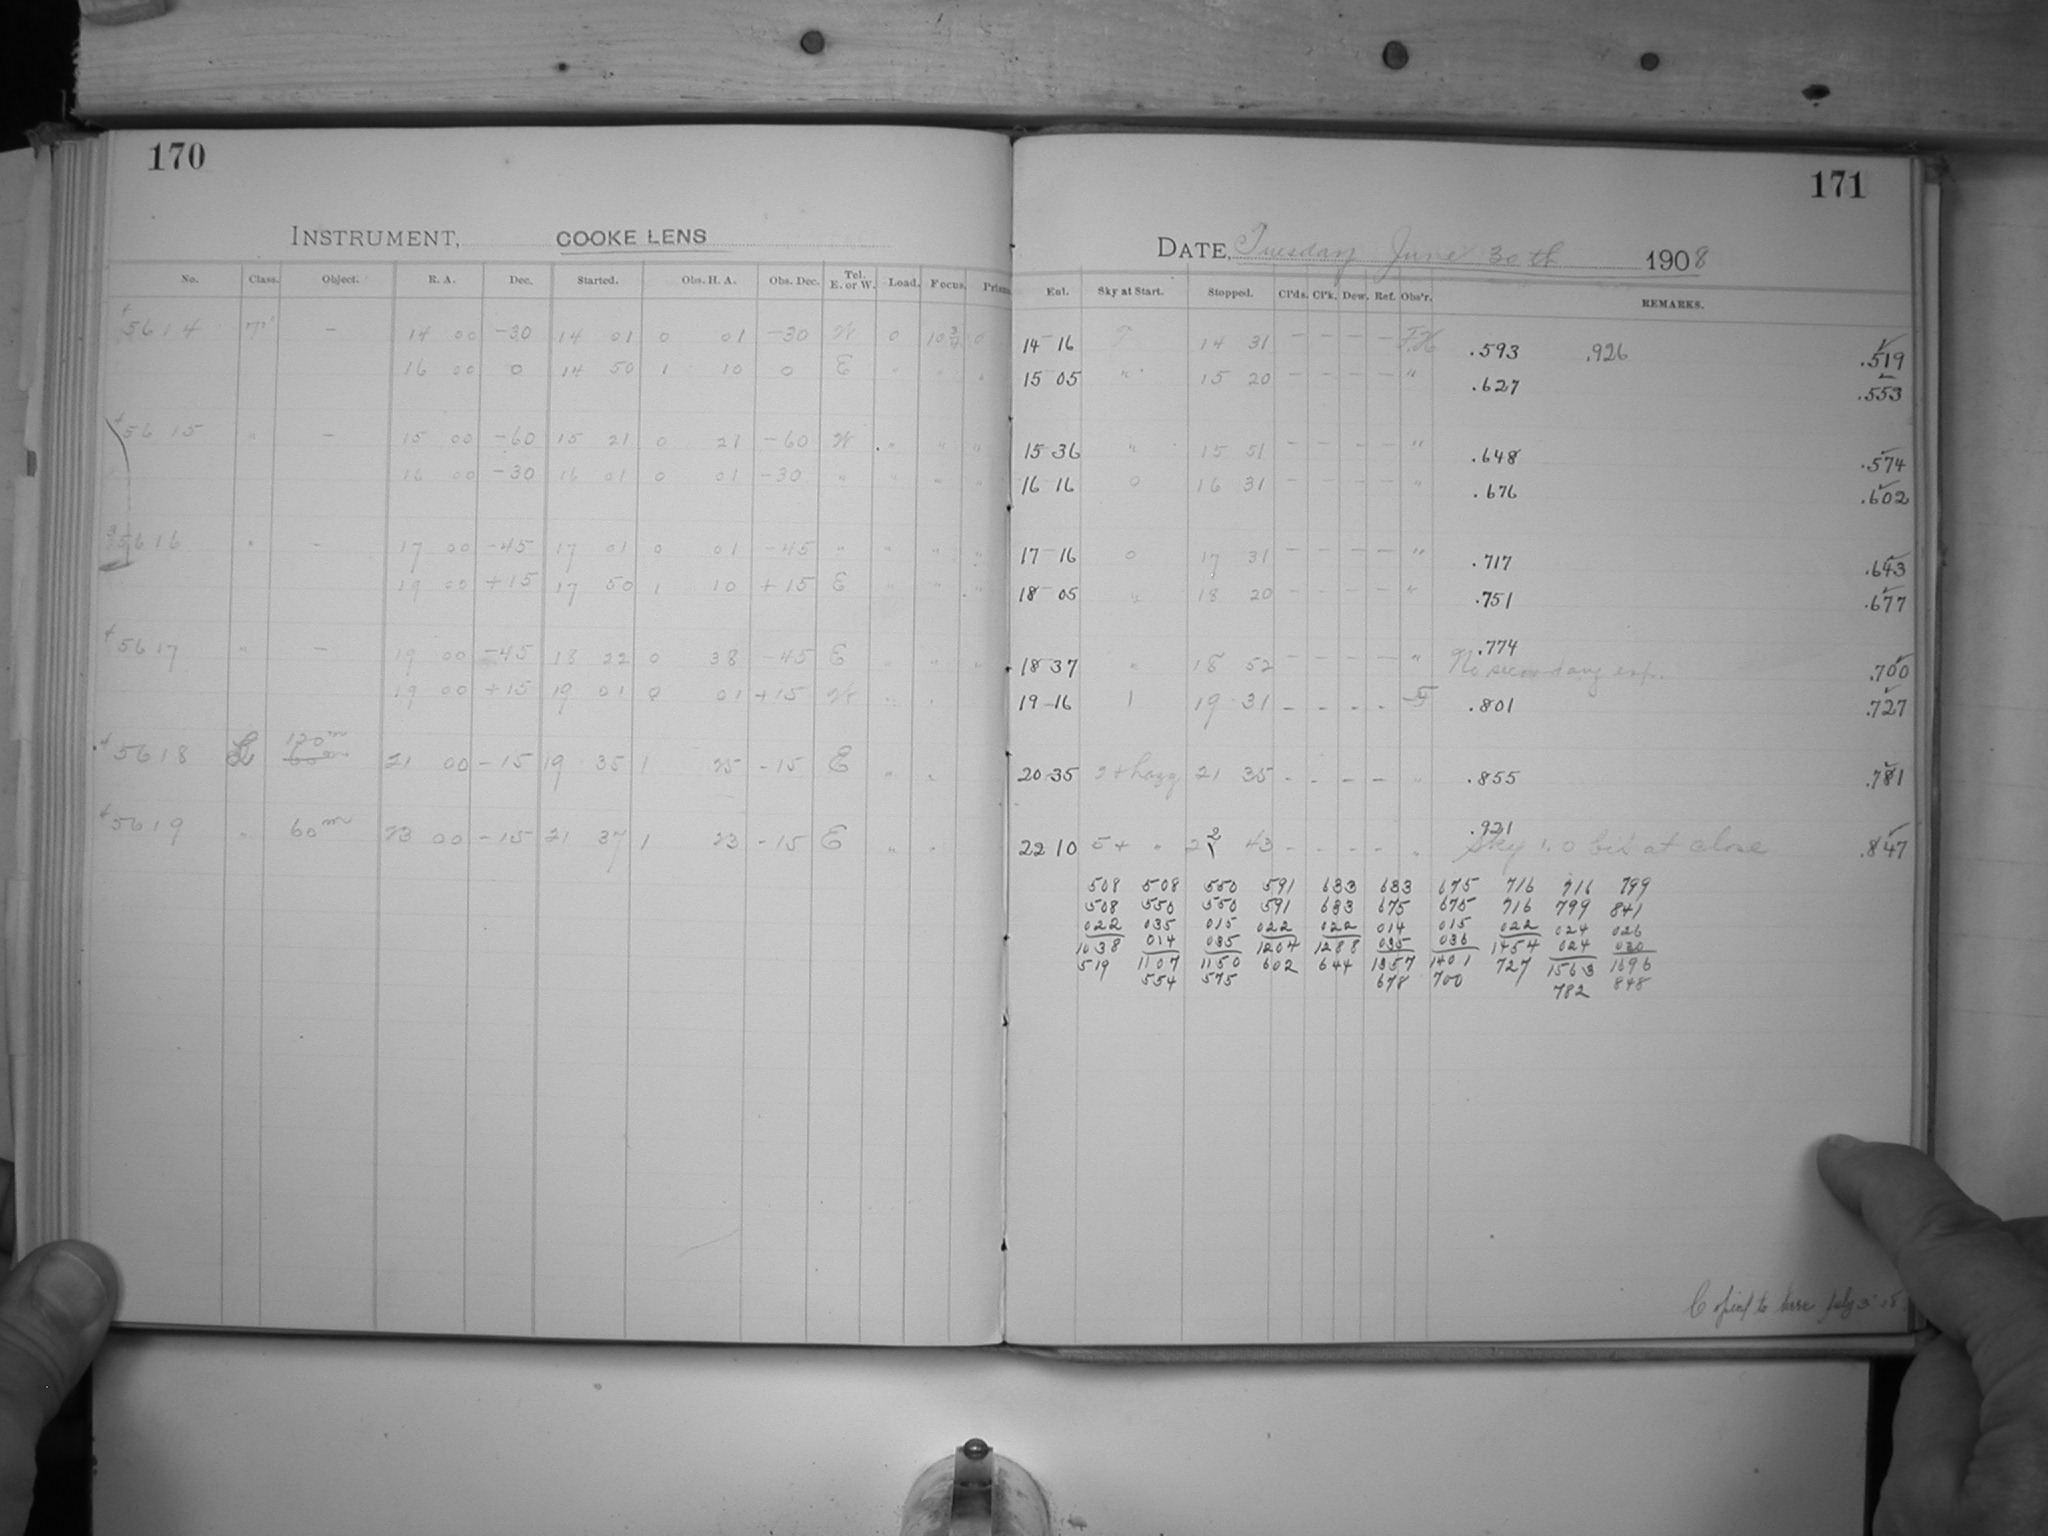 170
INSTRUMENT, COOKE LENS
No. Class. Object. R. A. Dec. Started. Obs. H. A. Obs. Dec. Tel. E. or W. Load. Focus. Prism
5614 — 14 00 -30 14 01 0 01 -30 W 0 10 3/4 0
16 00 0 14 50 1 10 0 E " " "
5615 " — 15 00 -60 15 21 0 21 -60 W " " "
16 00 -30 16 01 0 01 -30 " " " "
5616 " — 17 00 -45 17 01 0 01 -45 " " " "
19 00 +15 17 50 1 10 +15 E " " "
5617 " — 19 00 -45 18 22 0 38 -45 E " " "
19 00 +15 19 01 0 01 +15 W " "
5618 L 120m
60m 21 00 -15 19 35 1 25 -15 E " "
5619 " 60m 23 00 -15 21 37 1 23 -15 E " "
171
DATE, Tuesday June 30th 1908
Eul. Sky at Start. Stopped. Cl'ds. Cl'k. Dew. Ref. Obs'r. REMARKS.
14 16 14 31 — — — — F.H. .593 .926 .519
15 05 " 15 20 — — — — " .627 .553
15 36 " 15 51 — — — — " .648 .574
16 16 0 16 31 — — — — " .676 .602
17 16 0 17 31 — — — — " .717 .643
18 05 " 18 20 — — — — " .751 .677
.774
18 37 " 18 52 — — — — " No secondary exp. .700
19 16 1 19 31 — — — — .801 .727
20 35 2 + hazy 21 35 — — — — " .855 .781
.921
22 10 5 + " 22 43 — — — — " Sky 1.0 bit at close .847
508 508 550 591 633 633 675 716 716 799
508 550 550 591 633 675 675 716 799 841
022 035 015 022 022 014 015 022 024 026
1038 014 035 1204 1288 035 036 1454 024 030
519 1107 1150 602 644 1357 1401 727 1563 1696
554 575 678 700 782 848
Copied to here July 3